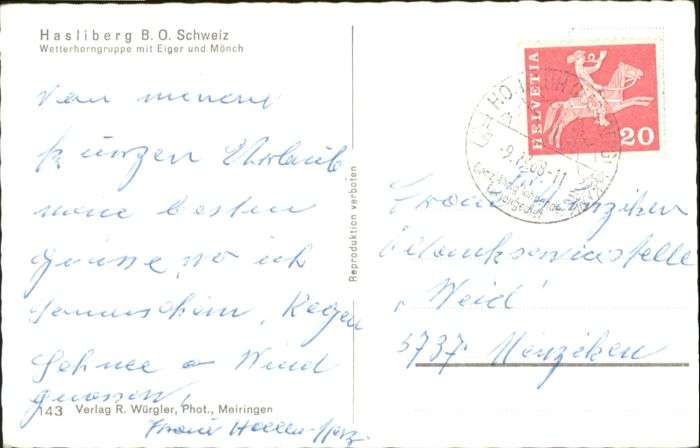 Hasliberg B. O. Schweiz
Wetterhorngruppe mit Eiger und Mönch
Von meinem
kurzen Uhrlaub
meine besten
Grüsse, wo ich
Sonnenschein, Regen
Schnee & Wind
genossen!
143 Verlag R. Würgler, Phot., Meiringen
Reproduktion verboten
HELVETIA
20
68-11
Menziken
„Weid"
5737 Menziken